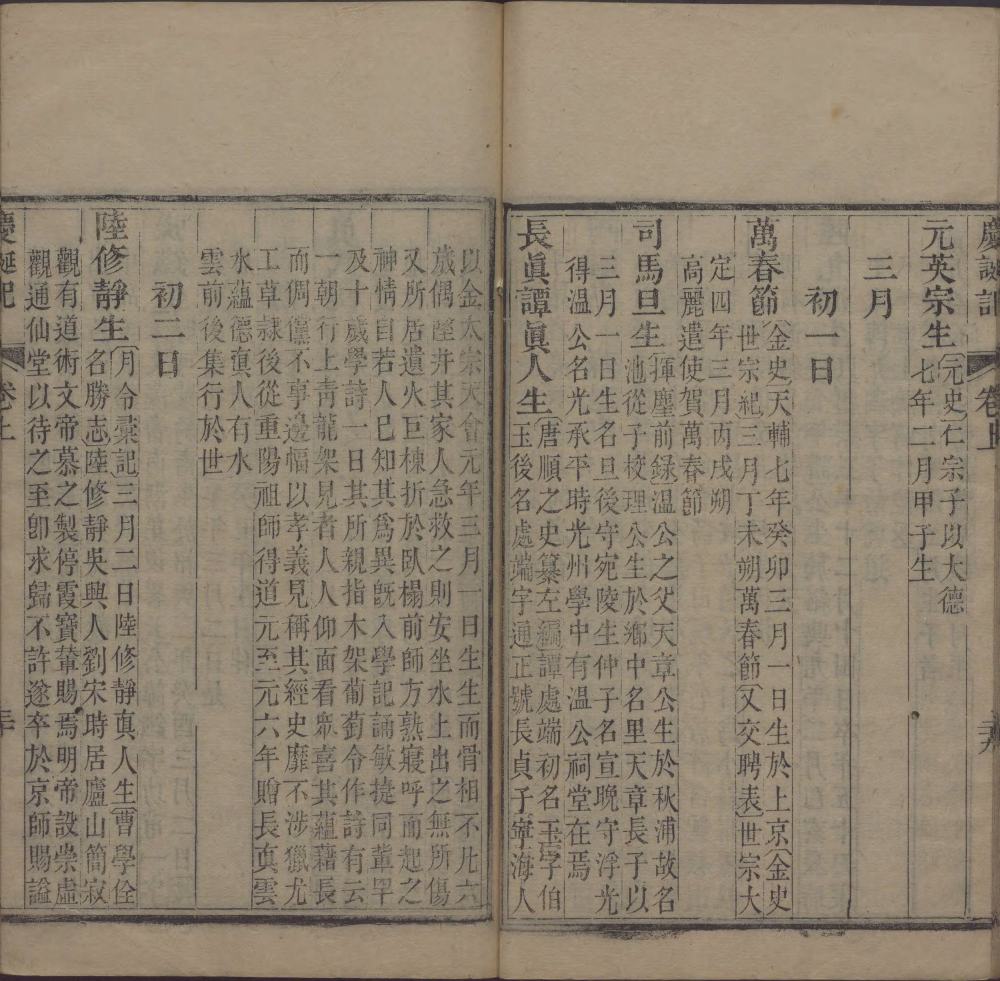 慶誕記 卷上
元英宗生 元史仁宗子以大德
七年二月甲子生
三月
初一日
萬春節 金史天輔七年癸卯三月一日生於上京金史
世宗紀三月丁未朔萬春節又交聘表世宗大
定四年三月丙戌朔
高麗遣使賀萬春節
司馬旦生 揮麈前録溫公之父天章公生於秋浦故名
池從子校理公生於鄉中名里天章長子以
三月一日生名旦後守宛陵生仲子名宣晚守浮光
得溫公名光承平時光州學中有溫公祠堂在焉
長眞譚眞人生 唐順之史纂左編譚處端初名玉字伯
玉後名處端字通正號長貞子寧海人
以金太宗天會元年三月一日生生而骨相不凡六
歲偶墮井其家人急救之則安坐水上出之無所傷
又所居遺火巨棟折於臥榻前師方熟寢呼而起之
神情自若人已知其爲異旣入學記誦敏捷同輩罕
及十歲學詩一日其所親指木架葡萄令作詩有云
一朝行上青龍架見者人人仰面看眾喜其蘊藉長
而倜儻不事邊幅以孝義見稱其經史靡不涉獵尤
工草隸後從重陽祖師得道元至元六年贈長眞雲
水蘊德眞人有水
雲前後集行於世
初二日
陸修靜生 月令彙記三月二日陸修靜眞人生曹學佺
名勝志陸修靜吳興人劉宋時居廬山簡寂
觀有道術文帝慕之製停霞寶輦賜焉明帝設崇虛
觀通仙堂以待之至卽求歸不許遂卒於京師賜謚
慶誕記 卷上